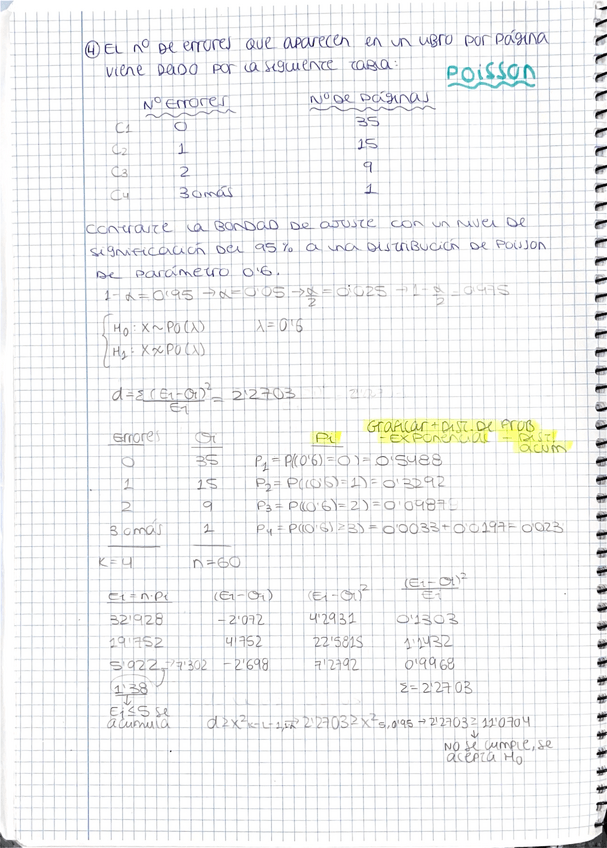 ④ El nº de errores que aparecen en un libro por página
viene dado por la siguiente tabla:
POISSON
Nº Errores Nº de páginas
C1 0 35
C2 1 15
C3 2 9
C4 3 o más 1
Contraste la bondad de ajuste con un nivel de
significación del 95% a una distribución de Poisson
de parámetro 0'6.
1-α=0'95 → α=0'05 → α/2=0'025 → 1-α/2=0'975
H0: X~PO(λ) λ=0'6
H1: X≁PO(λ)
d=Σ(Ei-Oi)²/Ei = 2'2703
Graficar + Dist. de Prob
- EXPONENCIAL - Dist.
acum
Errores Oi Pi
0 35 P1=P((0'6)=0)=0'5488
1 15 P2=P((0'6)=1)=0'3292
2 9 P3=P((0'6)=2)=0'0987
3 o más 1 P4=P((0'6)≥3)=0'0033+0'0197=0'023
K=4 n=60
Ei=n·Pi (Ei-Oi) (Ei-Oi)² (Ei-Oi)²/Ei
32'928 -2'072 4'2931 0'1303
19'752 4'752 22'5815 1'1432
5'922 → 7'302 -2'698 7'2792 0'9968
1'38 Σ=2'2703
Ei≤5 se
acumula
2'2703≥X²5,0'95 → 2'2703≥11'0704
No se cumple, se
acepta H0